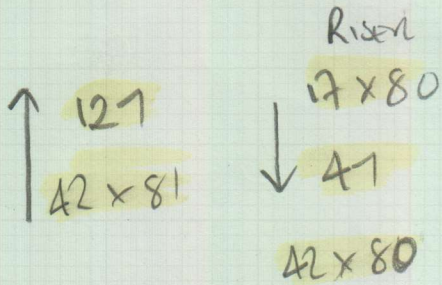 121
42 x 81
RISER
17 x 80
41
42 x 80